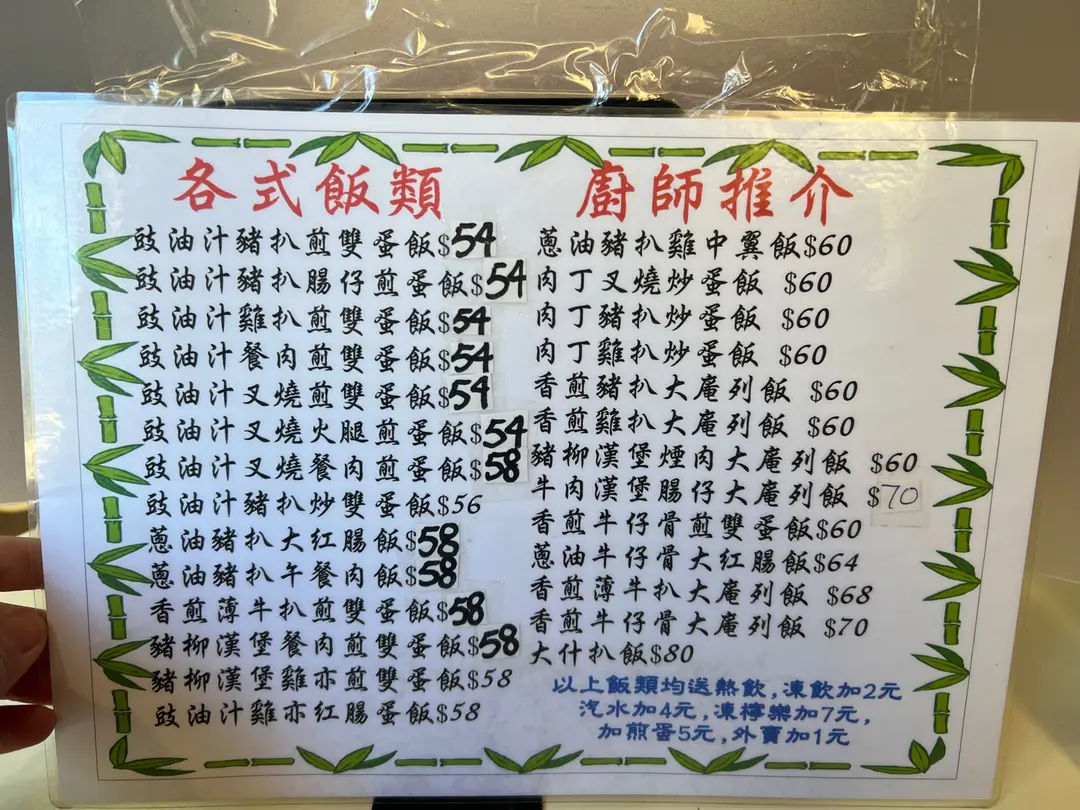 各式飯類
豉油汁豬扒煎雙蛋飯$54
豉油汁豬扒腸仔煎蛋飯$54
豉油汁雞扒煎雙蛋飯$54
豉油汁餐肉煎雙蛋飯$54
豉油汁叉燒煎雙蛋飯$54
豉油汁叉燒火腿煎蛋飯$54
豉油汁叉燒餐肉煎蛋飯$58
豉油汁豬扒炒雙蛋飯$56
蔥油豬扒大紅腸飯$58
蔥油豬扒午餐肉飯$58
香煎薄牛扒煎雙蛋飯$58
豬柳漢堡餐肉煎雙蛋飯$58
豬柳漢堡雞亦煎雙蛋飯$58
豉油汁雞亦紅腸蛋飯$58
廚師推介
蔥油豬扒雞中翼飯$60
肉丁叉燒炒蛋飯 $60
肉丁豬扒炒蛋飯 $60
肉丁雞扒炒蛋飯 $60
香煎豬扒大庵列飯 $60
香煎雞扒大庵列飯 $60
豬柳漢堡煙肉大庵列飯 $60
牛肉漢堡腸仔大庵列飯 $70
香煎牛仔骨煎雙蛋飯$60
蔥油牛仔骨大紅腸飯$64
香煎薄牛扒大庵列飯 $68
香煎牛仔骨大庵列飯 $70
大什扒飯$80
以上飯類均送熱飲,凍飲加2元
汽水加4元,凍檸樂加7元,
加煎蛋5元,外賣加1元